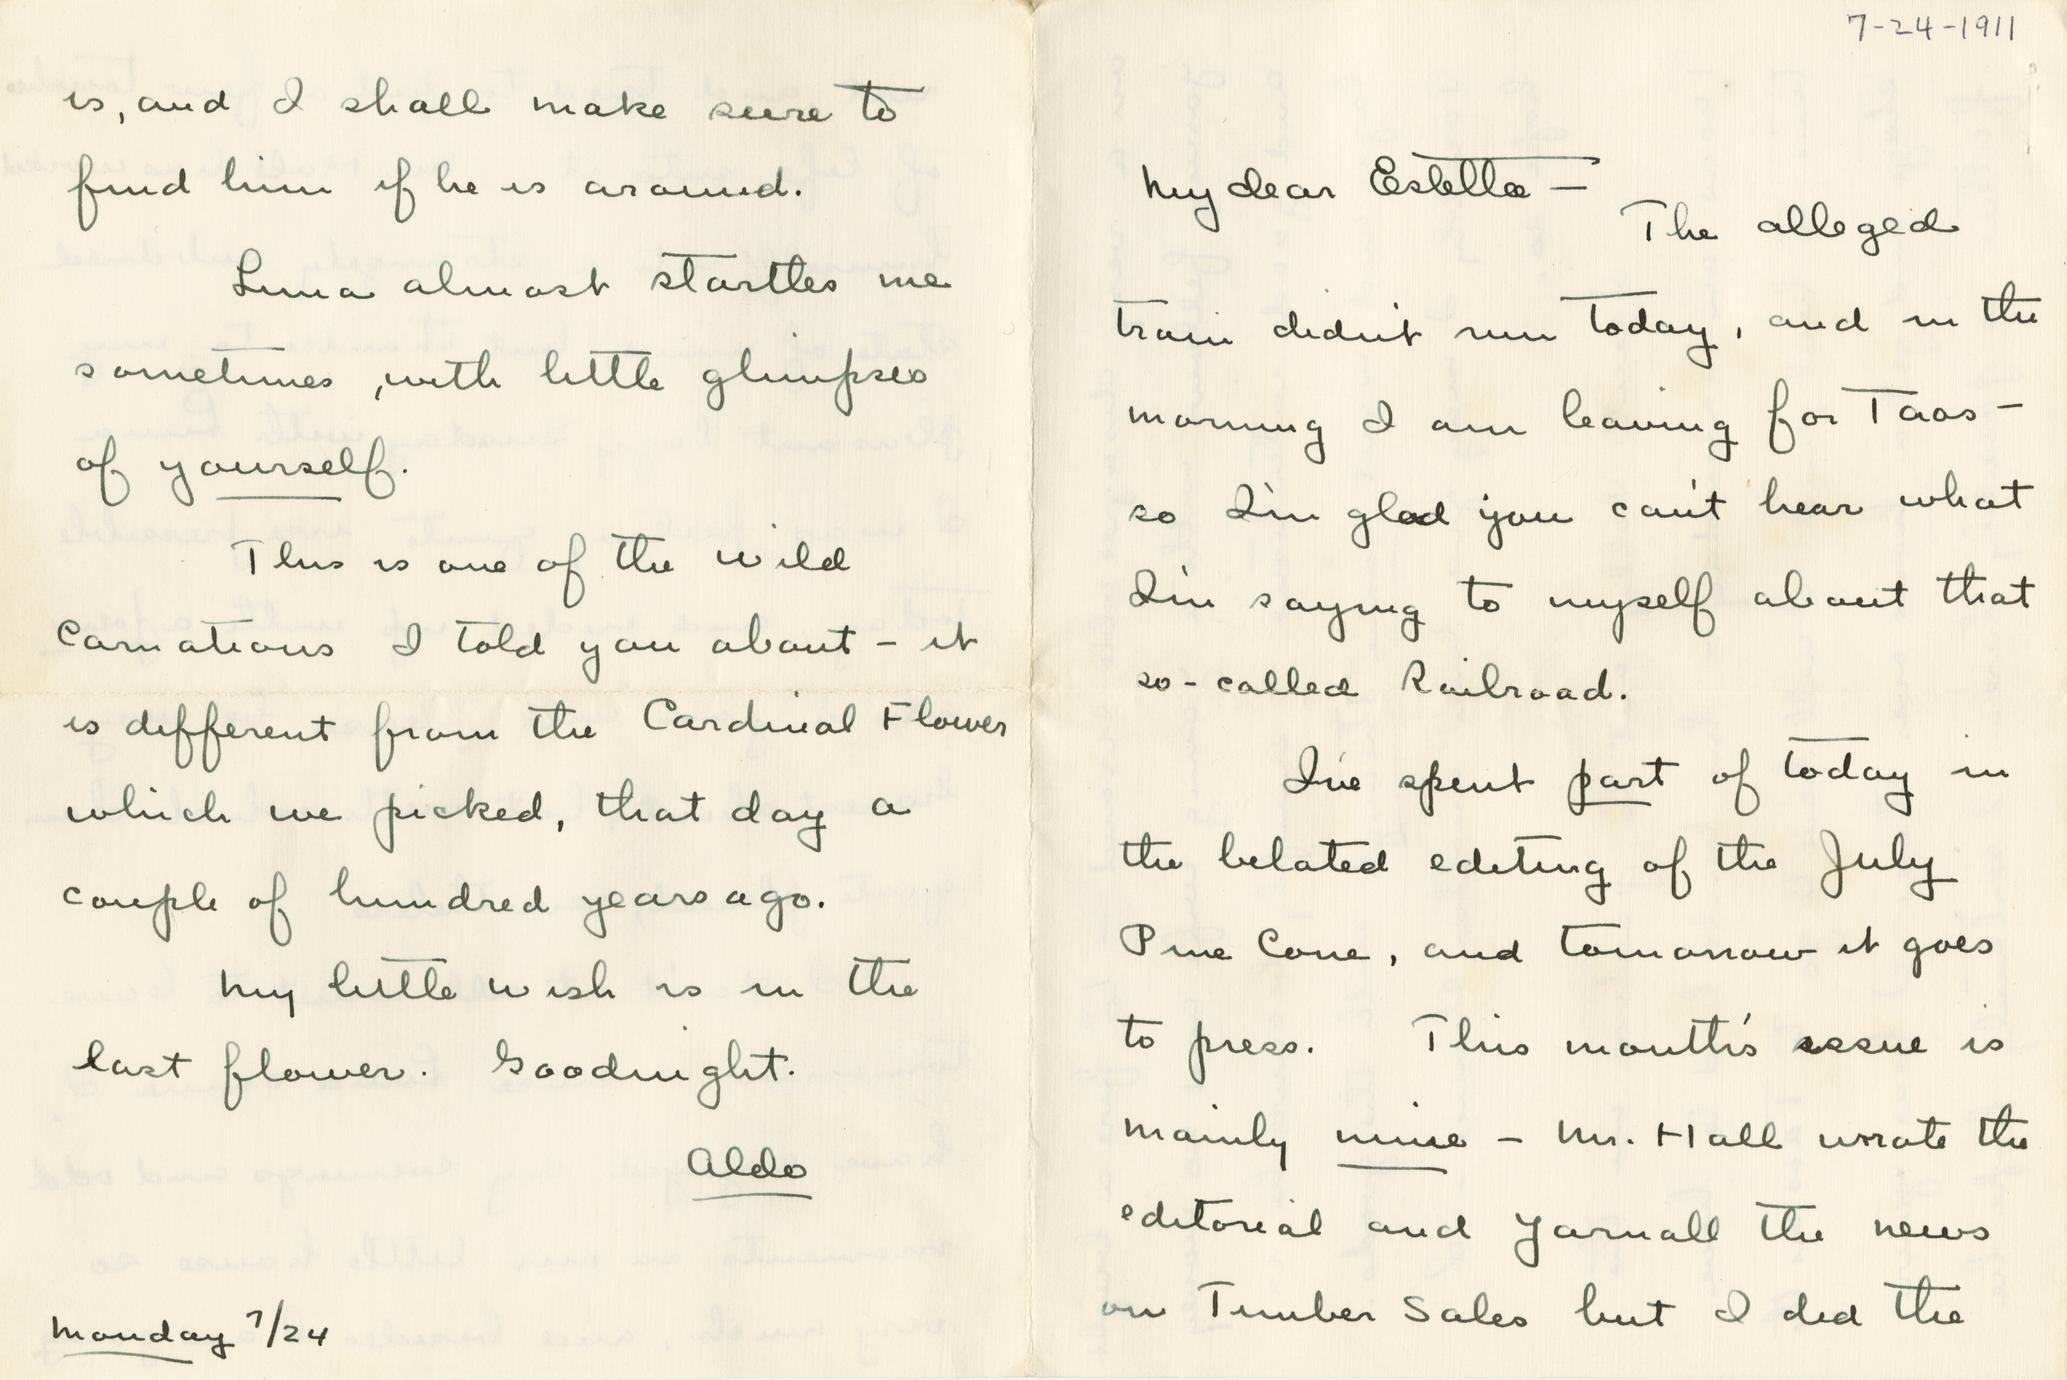 7-24-1911
My dear Estella —
The alleged
train didn't run today, and in the
morning I am leaving for Taos —
so I'm glad you can't hear what
I'm saying to myself about that
so-called Railroad.
I've spent part of today in
the belated editing of the July
Pine Cone, and tomorrow it goes
to press. This month's issue is
mainly mine — Mr. Hall wrote the
editorial and Yarnall the news
on Timber Sales but I did the
is, and I shall make sure to
find him if he is around.
Luna almost startles me
sometimes, with little glimpses
of yourself.
This is one of the wild
carnations I told you about — it
is different from the Cardinal Flower
which we picked, that day a
couple of hundred years ago.
My little wish is in the
last flower. Goodnight.
Aldo
Monday 7/24